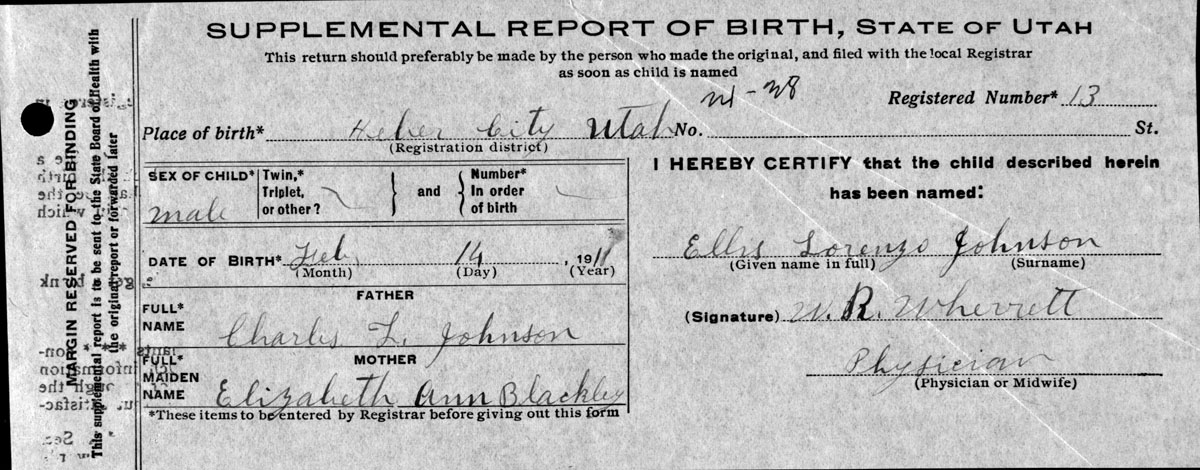 SUPPLEMENTAL REPORT OF BIRTH, STATE OF UTAH
This return should preferably be made by the person who made the original, and filed with the local Registrar
as soon as child is named
Registered Number* 13
Place of birth* Heber City Utah No. St.
(Registration district)
SEX OF CHILD* male
Twin,*
Triplet,
or other?
and
Number*
In order
of birth
DATE OF BIRTH* Feb. 14, 1911
(Month) (Day) (Year)
FATHER
FULL*
NAME Charles L. Johnson
MOTHER
FULL*
MAIDEN
NAME Elizabeth Ann Blackley
*These items to be entered by Registrar before giving out this form
I HEREBY CERTIFY that the child described herein
has been named:
Ellis Lorenzo Johnson
(Given name in full) (Surname)
(Signature) W. R. Wherritt
Physician
(Physician or Midwife)
MARGIN RESERVED FOR BINDING
This supplemental report is to be sent to the State Board of Health with
the original report or forwarded later